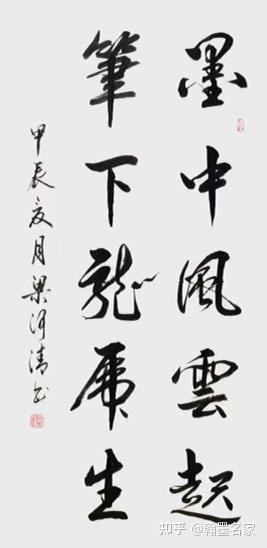 墨中風雲起
筆下龍虎生
甲辰夏月梁河清书
知乎 @翰墨名家